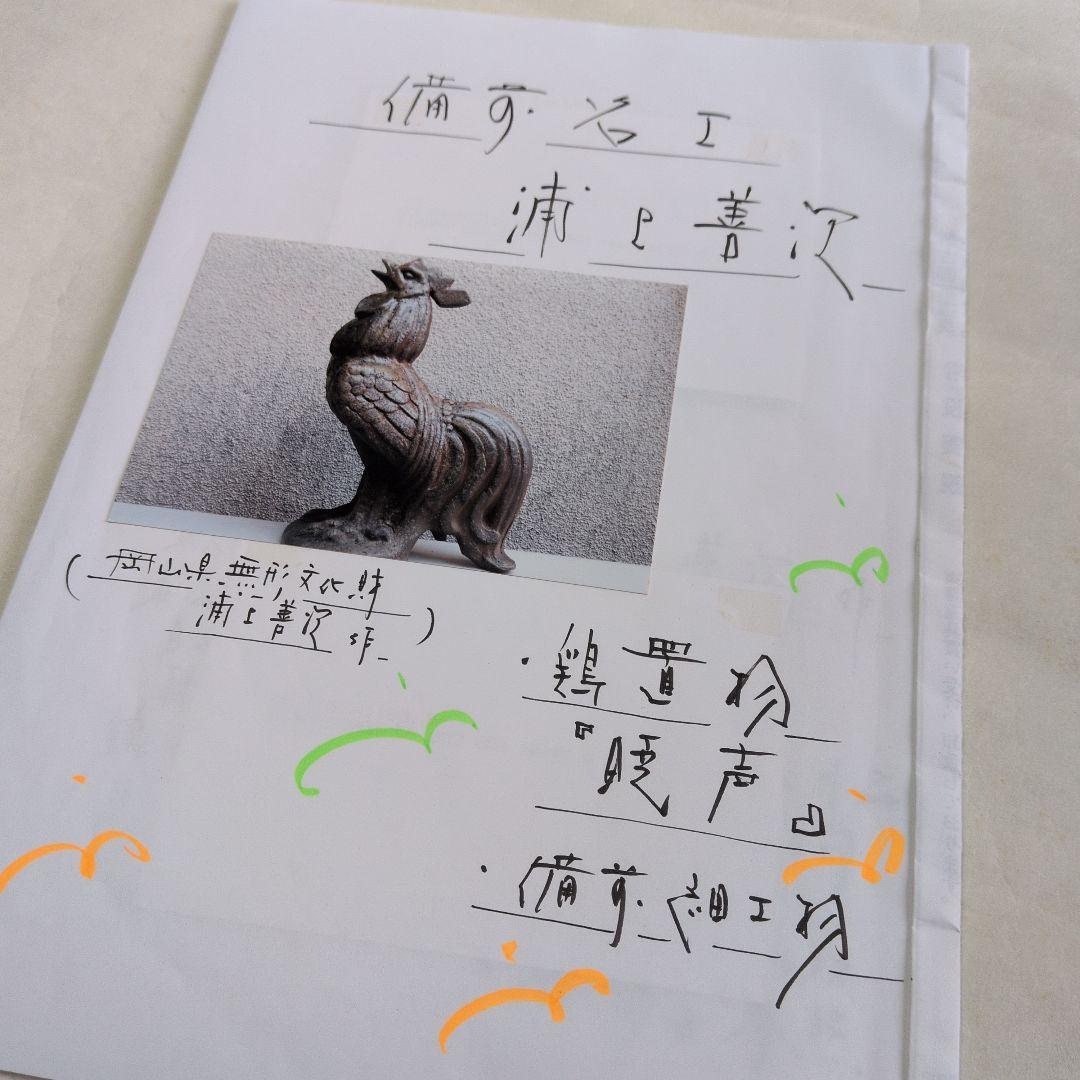 備前名工
浦上善次
(岡山県無形文化財
浦上善次作)
・鶏置物
『暁声』
・備前細工物